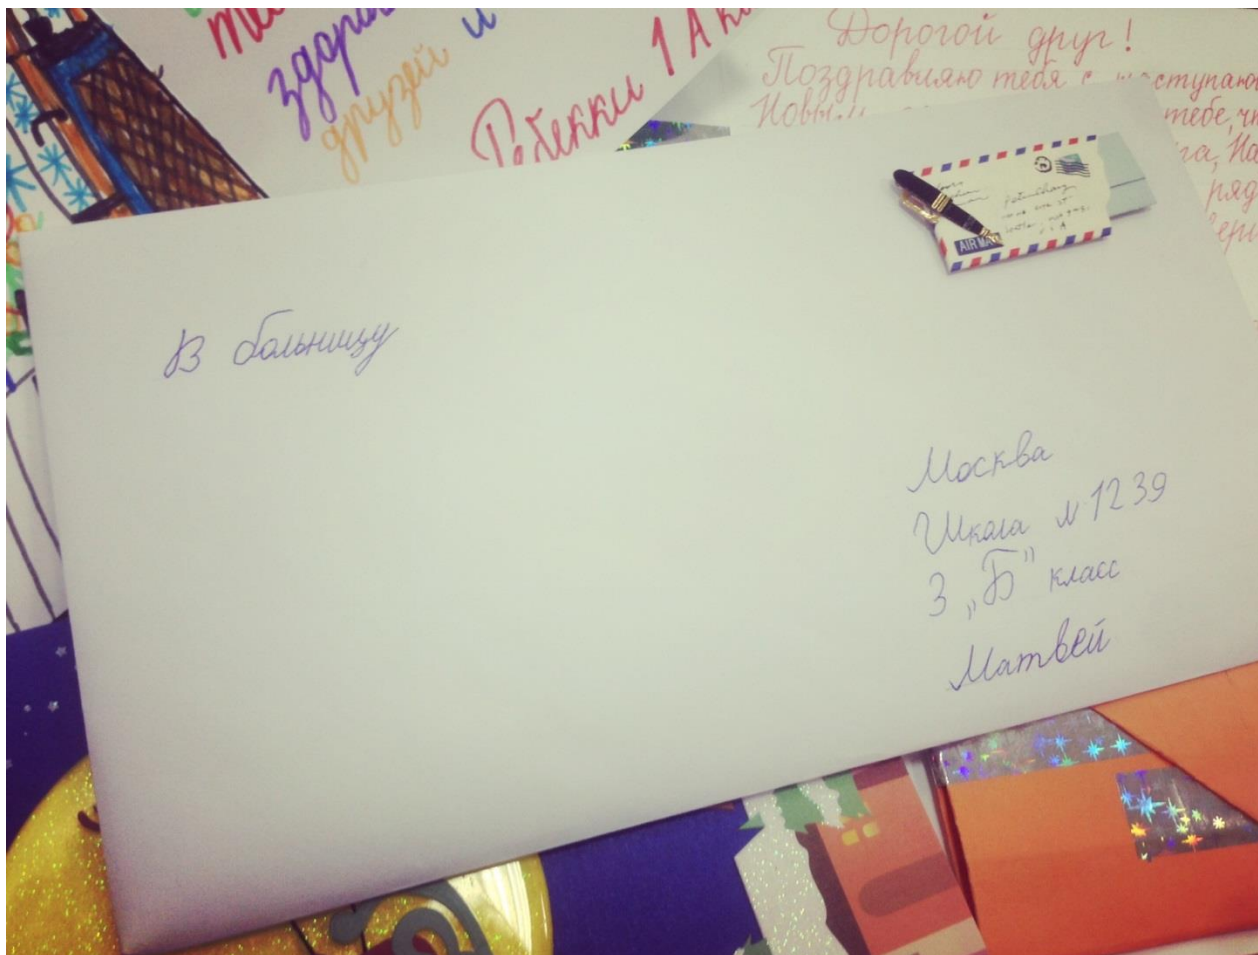 здоров
друзей и
Ребекки 1 А кл
Дорогой друг!
Поздравляю тебя с наступаю
Новым тебе, чт
AIR MAIL
В больницу
Москва
Школа № 1239
3 „Б" класс
Матвей